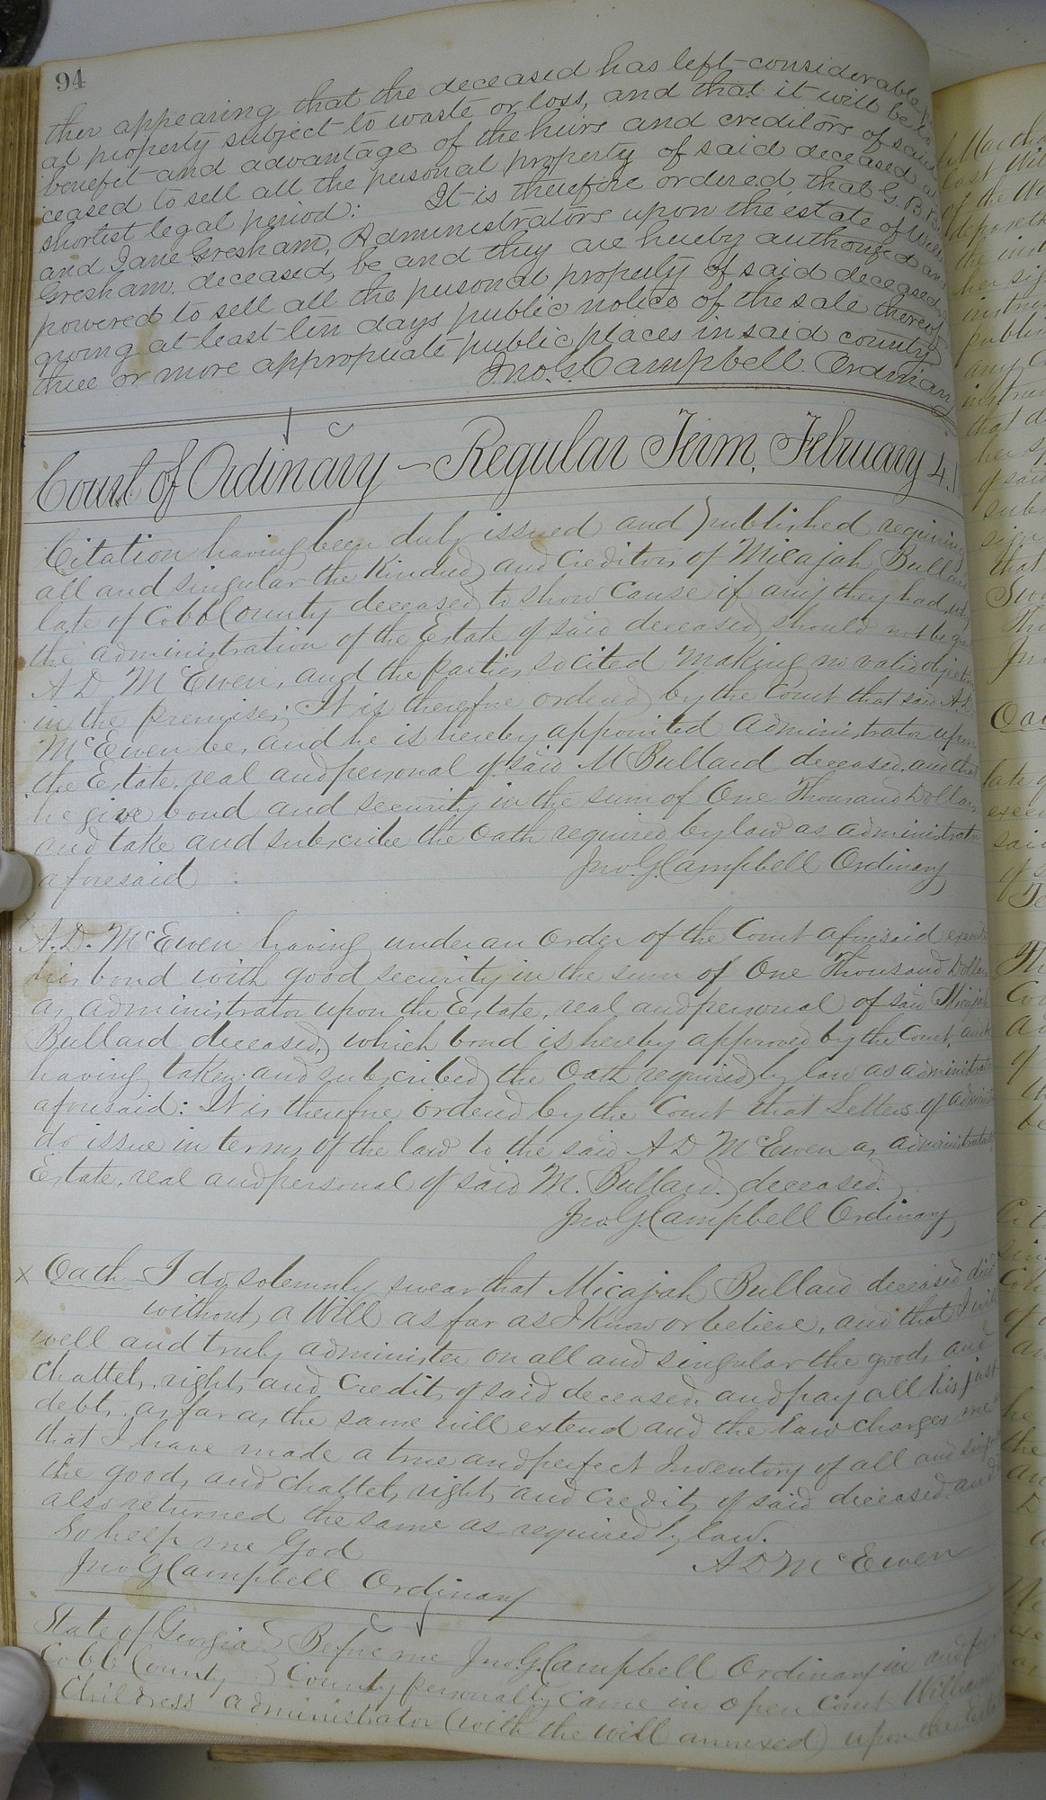 94
ther appearing that the deceased has left considerable
al property subject to waste or loss, and that it will be
benefit and advantage of the heirs and creditors of said
ceased to sell all the personal property of said deceased
shortest legal period: It is therefore ordered that G. B.
and Jane Gresham, Administrators upon the estate of
Gresham deceased, be and they are hereby authorized
powered to sell all the personal property of said deceased
giving at least ten days public notice of the sale thereof
three or more appropriate public places in said county
Jno. G. Campbell Ordinary
Court of Ordinary – Regular Term, February 4.
Citation having been duly issued and published requiring
all and singular the Kindred, and Creditors, of Micajah Bullard
late of Cobb County deceased to show Cause if any they had, why
the administration of the Estate of said deceased, should not be
A D McEwen, and the parties so cited making no valid
in the premises; It is therefore ordered by the Court that said A D
McEwen be, and he is hereby appointed administrator upon
the Estate, real and personal of said M Bullard deceased, and that
he give bond and security in the sum of One Thousand Dollars
and take and subscribe the Oath required by law as administrator
aforesaid
Jno. G. Campbell Ordinary
A. D. McEwen having under an Order of the Court aforesaid
his bond with good security in the sum of One Thousand Dollars
as administrator upon the Estate, real and personal of said Micajah
Bullard deceased, which bond is hereby approved by the Court, and
having taken and subscribed the Oath required by law as administrator
aforesaid: It is therefore ordered by the Court that Letters of
do issue in terms of the law to the said A D McEwen as administrator
Estate, real and personal of said M. Bullard, deceased.
Jno. G. Campbell Ordinary
x Oath I do solemnly swear that Micajah Bullard deceased died
without a Will as far as I Know or believe, and that I will
well and truly administer on all and singular the goods and
chattels, rights and Credits of said deceased, and pay all his just
debts, as far as the same will extend and the law charges me
that I have made a true and perfect Inventory of all and
the goods and chattels, rights and Credits of said deceased and
also returned the same as required by law.
So help me God
A D McEwen
Jno G Campbell Ordinary
State of Georgia } Before me Jno. G. Campbell Ordinary in and for
Cobb County } County personally came in open Court William
Childress administrator (with the will annexed) upon the